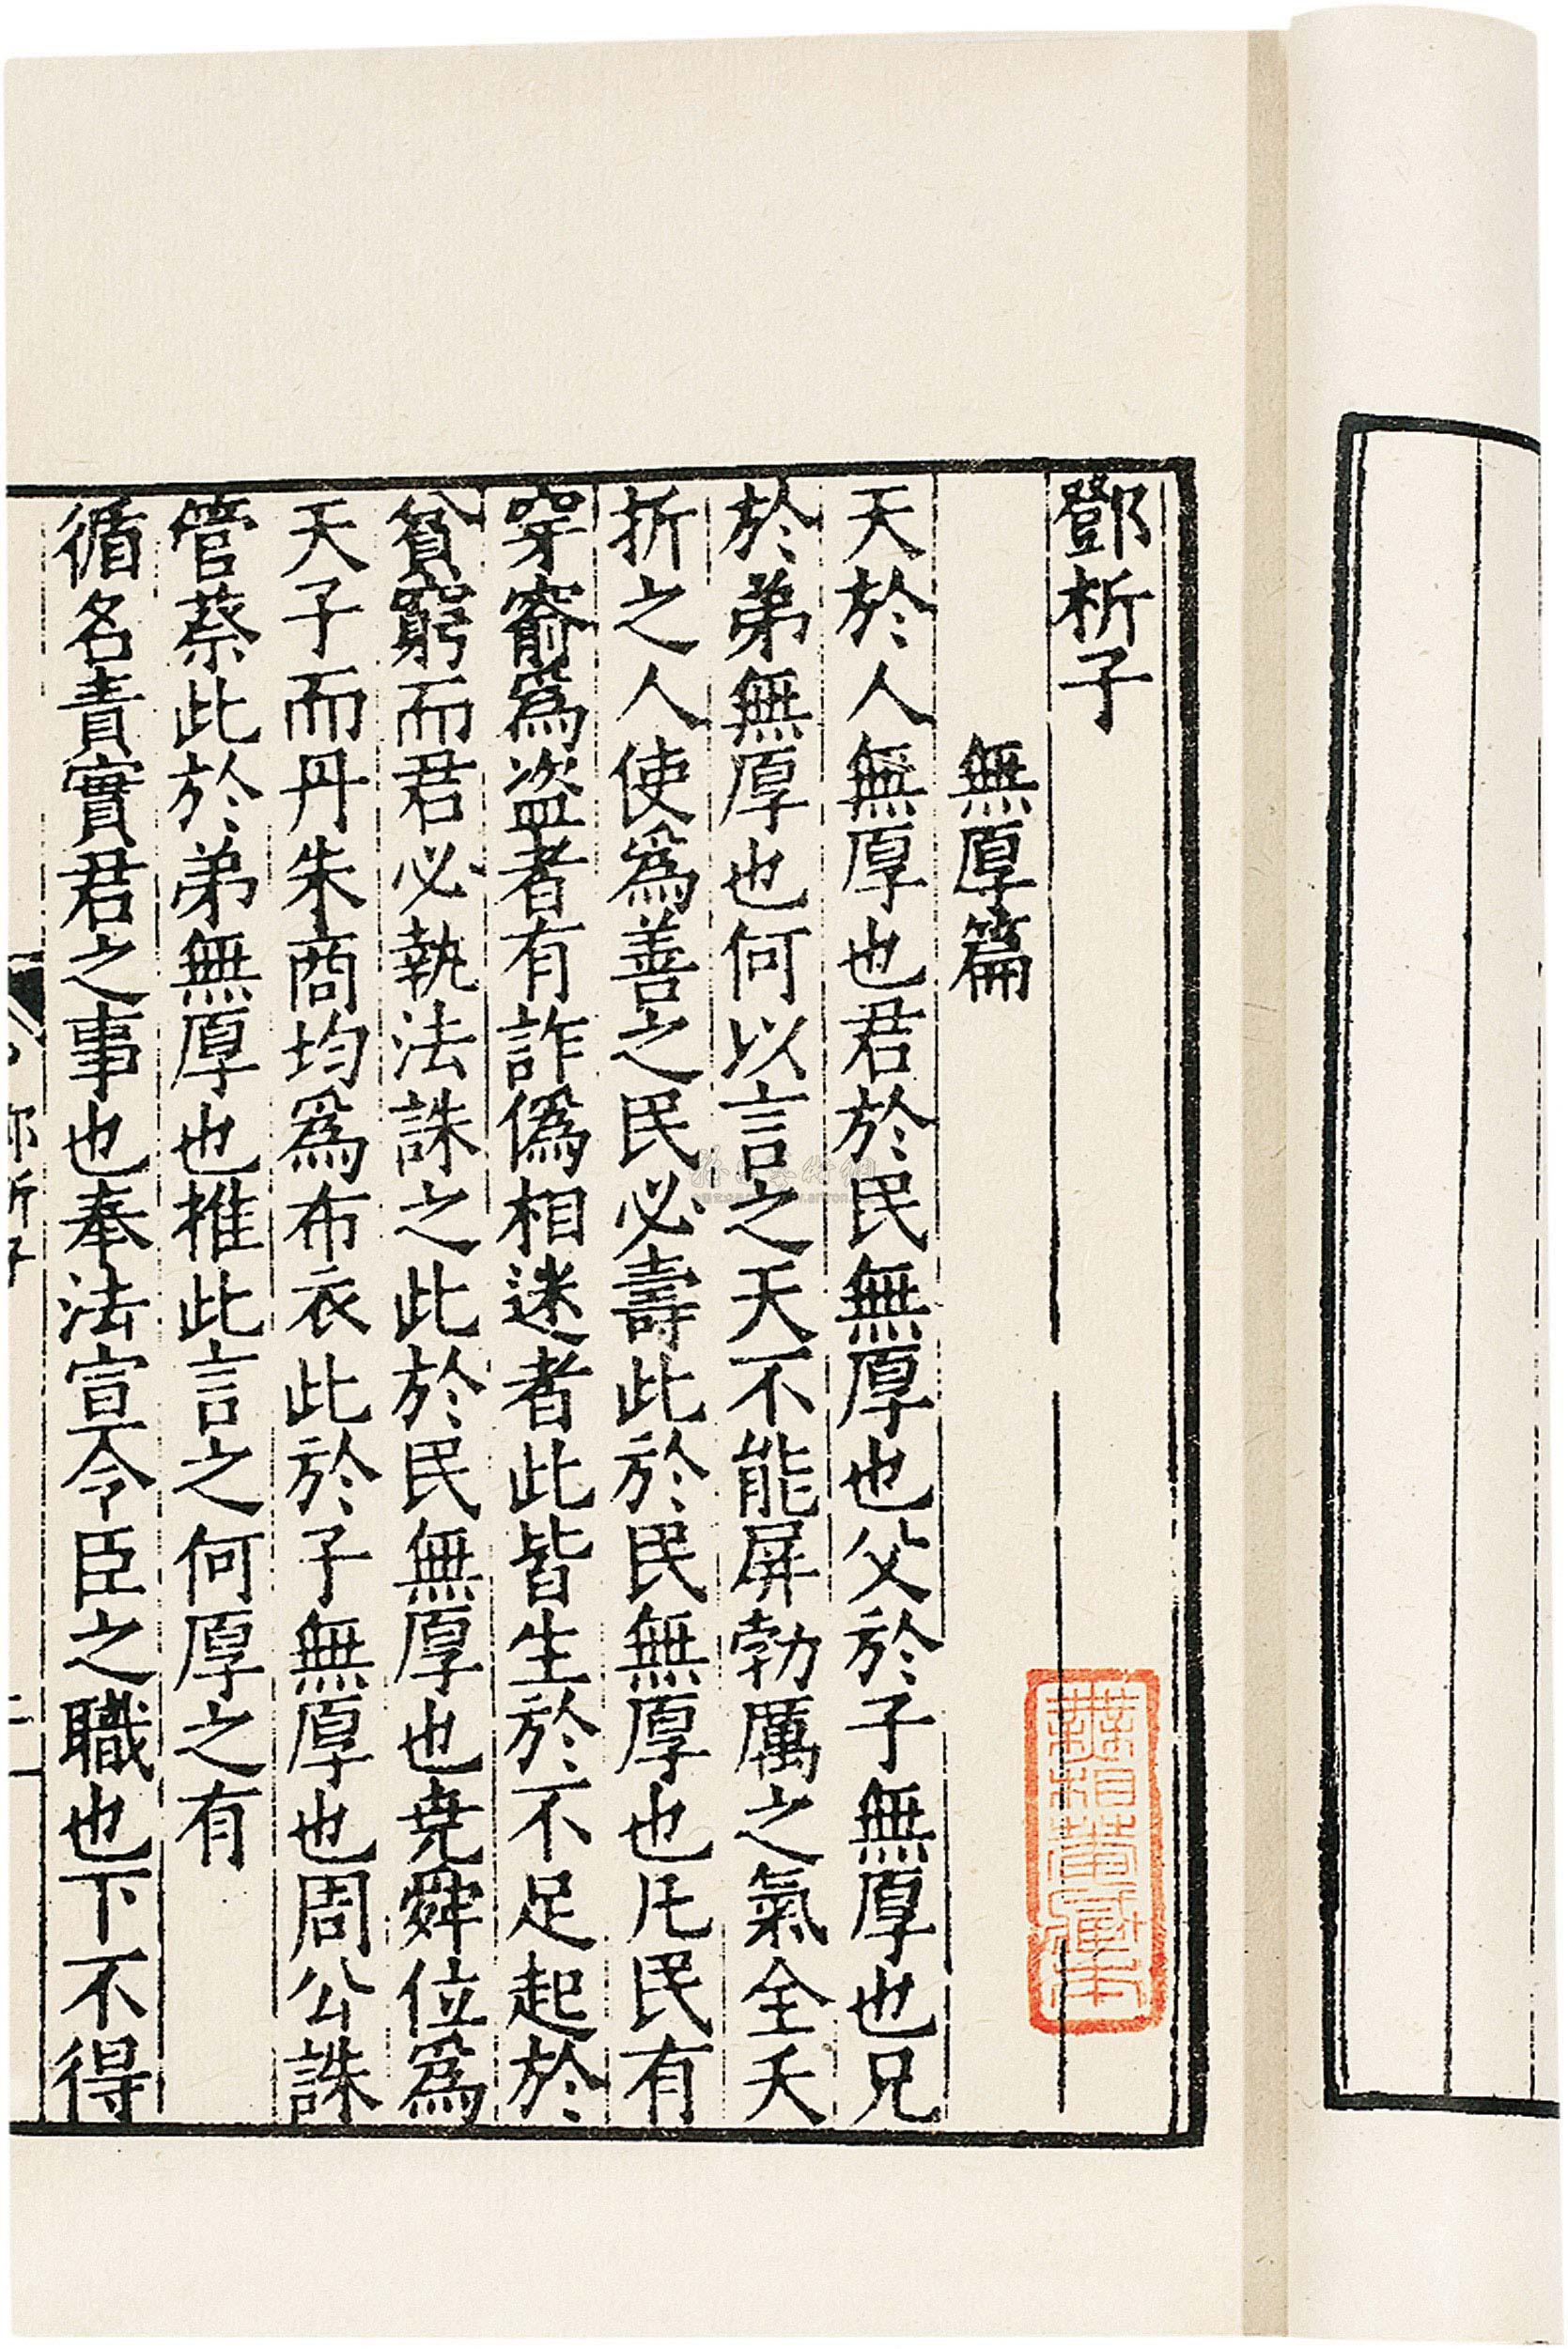 鄧析子
無厚篇
天於人無厚也君於民無厚也父於子無厚也兄
於弟無厚也何以言之天不能屏勃厲之氣全夭
折之人使爲善之民必壽此於民無厚也凡民有
穿窬爲盗者有詐僞相迷者此皆生於不足起於
貧窮而君必執法誅之此於民無厚也堯舜位爲
天子而丹朱商均爲布衣此於子無厚也周公誅
管蔡此於弟無厚也推此言之何厚之有
循名責實君之事也奉法宣令臣之職也下不得